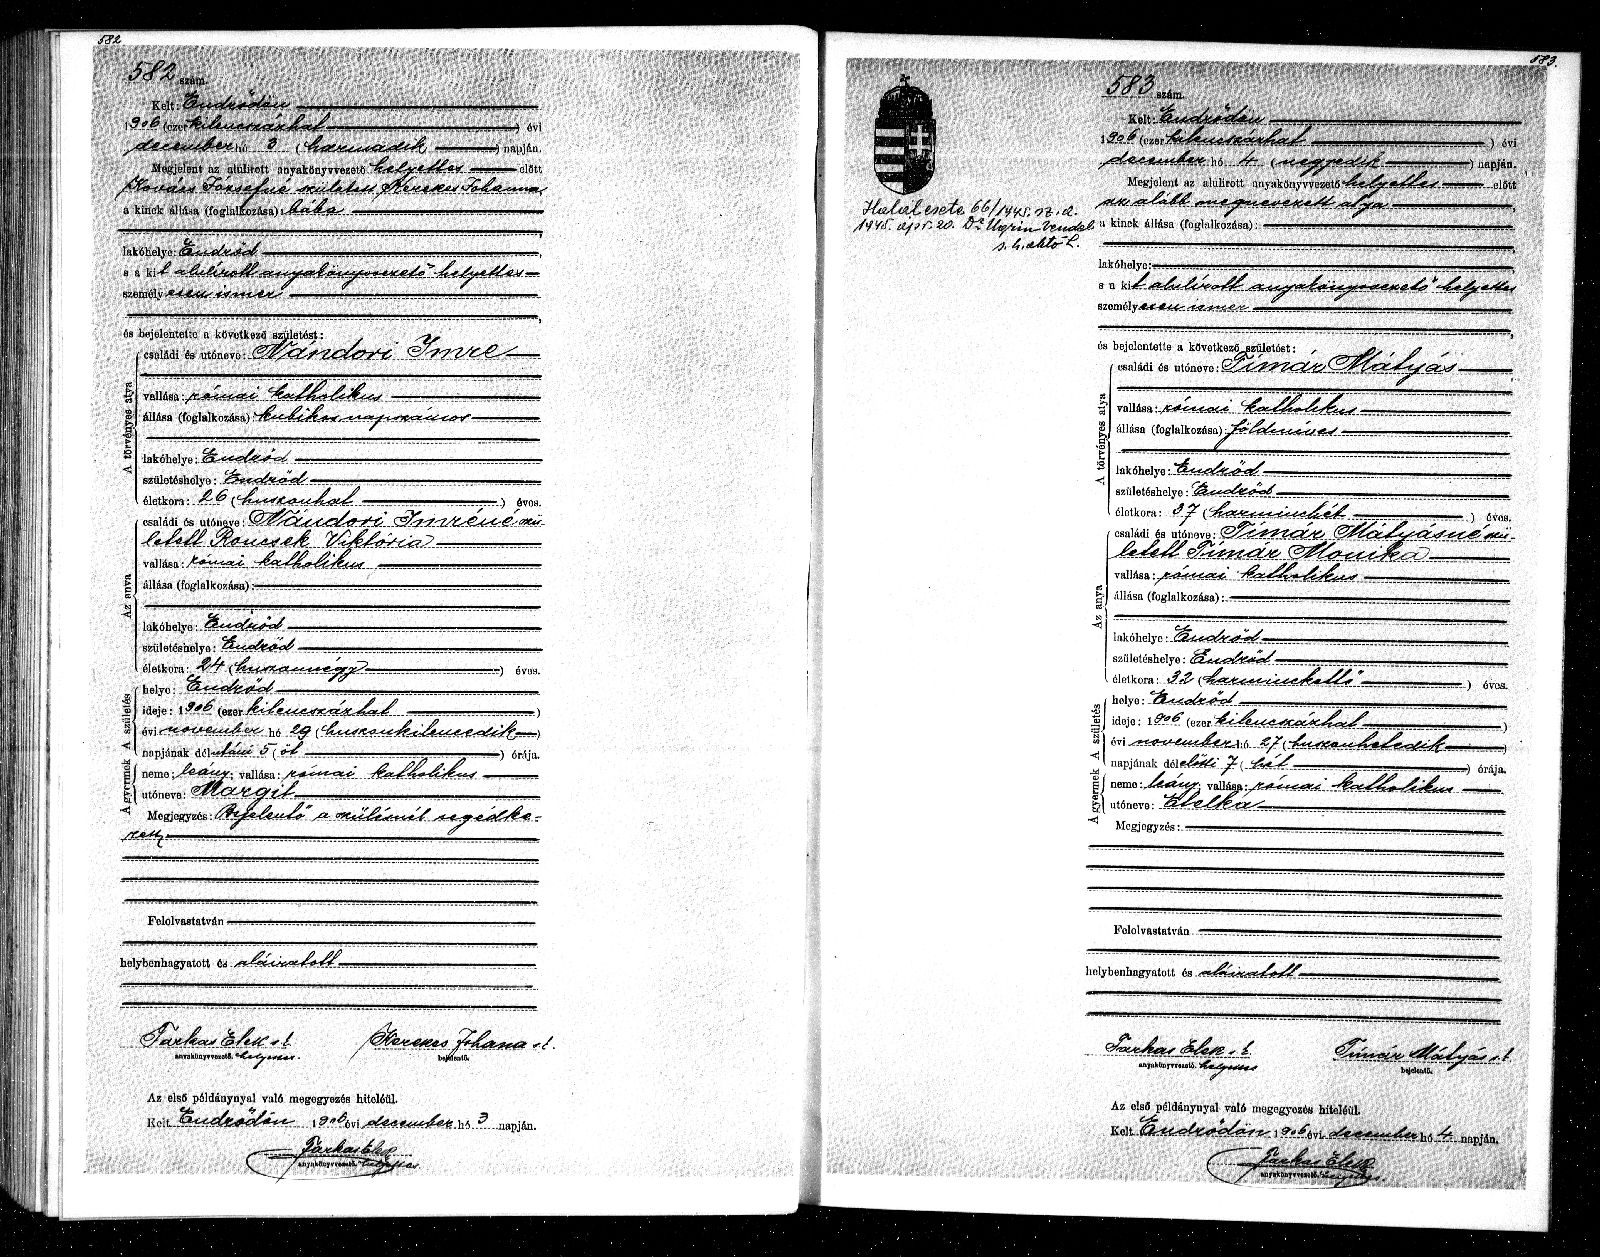 582
582 szám.
Kelt: Endrődön
1906 (ezer kilencszázhat) évi
december hó 3 (harmadik) napján.
Megjelent az alulirott anyakönyvvezető helyettes előtt
Kovács Józsefné született Kerekes Johanna,
a kinek állása (foglalkozása): bába
lakóhelye: Endrőd
s a kit alulírott anyakönyvvezető helyettes
személyesen ismer
és bejelentette a következő születést:
A törvényes atya
családi és utóneve: Nándori Imre
vallása: római katholikus
állása (foglalkozása): kubikos napszámos
lakóhelye: Endrőd
születéshelye: Endrőd
életkora: 26 (huszonhat) éves.
Az anya
családi és utóneve: Nándori Imréné szü-
letett Roncsek Viktória
vallása: római katholikus
állása (foglalkozása):
lakóhelye: Endrőd
születéshelye: Endrőd
életkora: 24 (huszonnégy) éves.
A gyermek A születés
helye: Endrőd
ideje: 1906 (ezer kilencszázhat)
évi november hó 29 (huszonkilencedik)
napjának délutáni 5 (öt) órája.
neme: leány; vallása: római katholikus
utóneve: Margit
Megjegyzés: Bejelentő a szülésnél segédke-
zett
Felolvastatván
helybenhagyatott és aláiratott
Farkas Elek s.k. Kerekes Johana s.k.
anyakönyvvezető. helyettes. bejelentő.
Az első példánynyal való megegyezés hiteléül.
Kelt Endrődön 1906 évi december hó 3 napján.
Farkas Elek
anyakönyvvezető. helyettes
583.
583 szám.
Kelt: Endrődön
1906 (ezer kilencszázhat) évi
december hó 4 (negyedik) napján.
Megjelent az alulirott anyakönyvvezető helyettes előtt
az alább megnevezett atya,
a kinek állása (foglalkozása):
lakóhelye:
s a kit alulírott anyakönyvvezető helyettes
személyesen ismer
és bejelentette a következő születést:
Halál esete 66/1945. sz. a.
1945. ápr. 20. Dr Ugrin Vendel
s. h. aktő L.
A törvényes atya
családi és utóneve: Tímár Mátyás
vallása: római katholikus
állása (foglalkozása): földmíves
lakóhelye: Endrőd
születéshelye: Endrőd
életkora: 37 (harminchét) éves.
Az anya
családi és utóneve: Tímár Mátyásné szü-
letett Tímár Monika
vallása: római katholikus
állása (foglalkozása):
lakóhelye: Endrőd
születéshelye: Endrőd
életkora: 32 (harminckettő) éves.
A gyermek A születés
helye: Endrőd
ideje: 1906 (ezer kilencszázhat)
évi november hó 27 (huszonhetedik)
napjának délelőtti 7 (hét) órája.
neme: leány; vallása: római katholikus
utóneve: Etelka
Megjegyzés:
Felolvastatván
helybenhagyatott és aláiratott
Farkas Elek s.k. Tímár Mátyás s.k.
anyakönyvvezető. helyettes bejelentő.
Az első példánynyal való megegyezés hiteléül.
Kelt Endrődön 1906 évi december hó 4 napján.
Farkas Elek
anyakönyvvezető. helyettes.